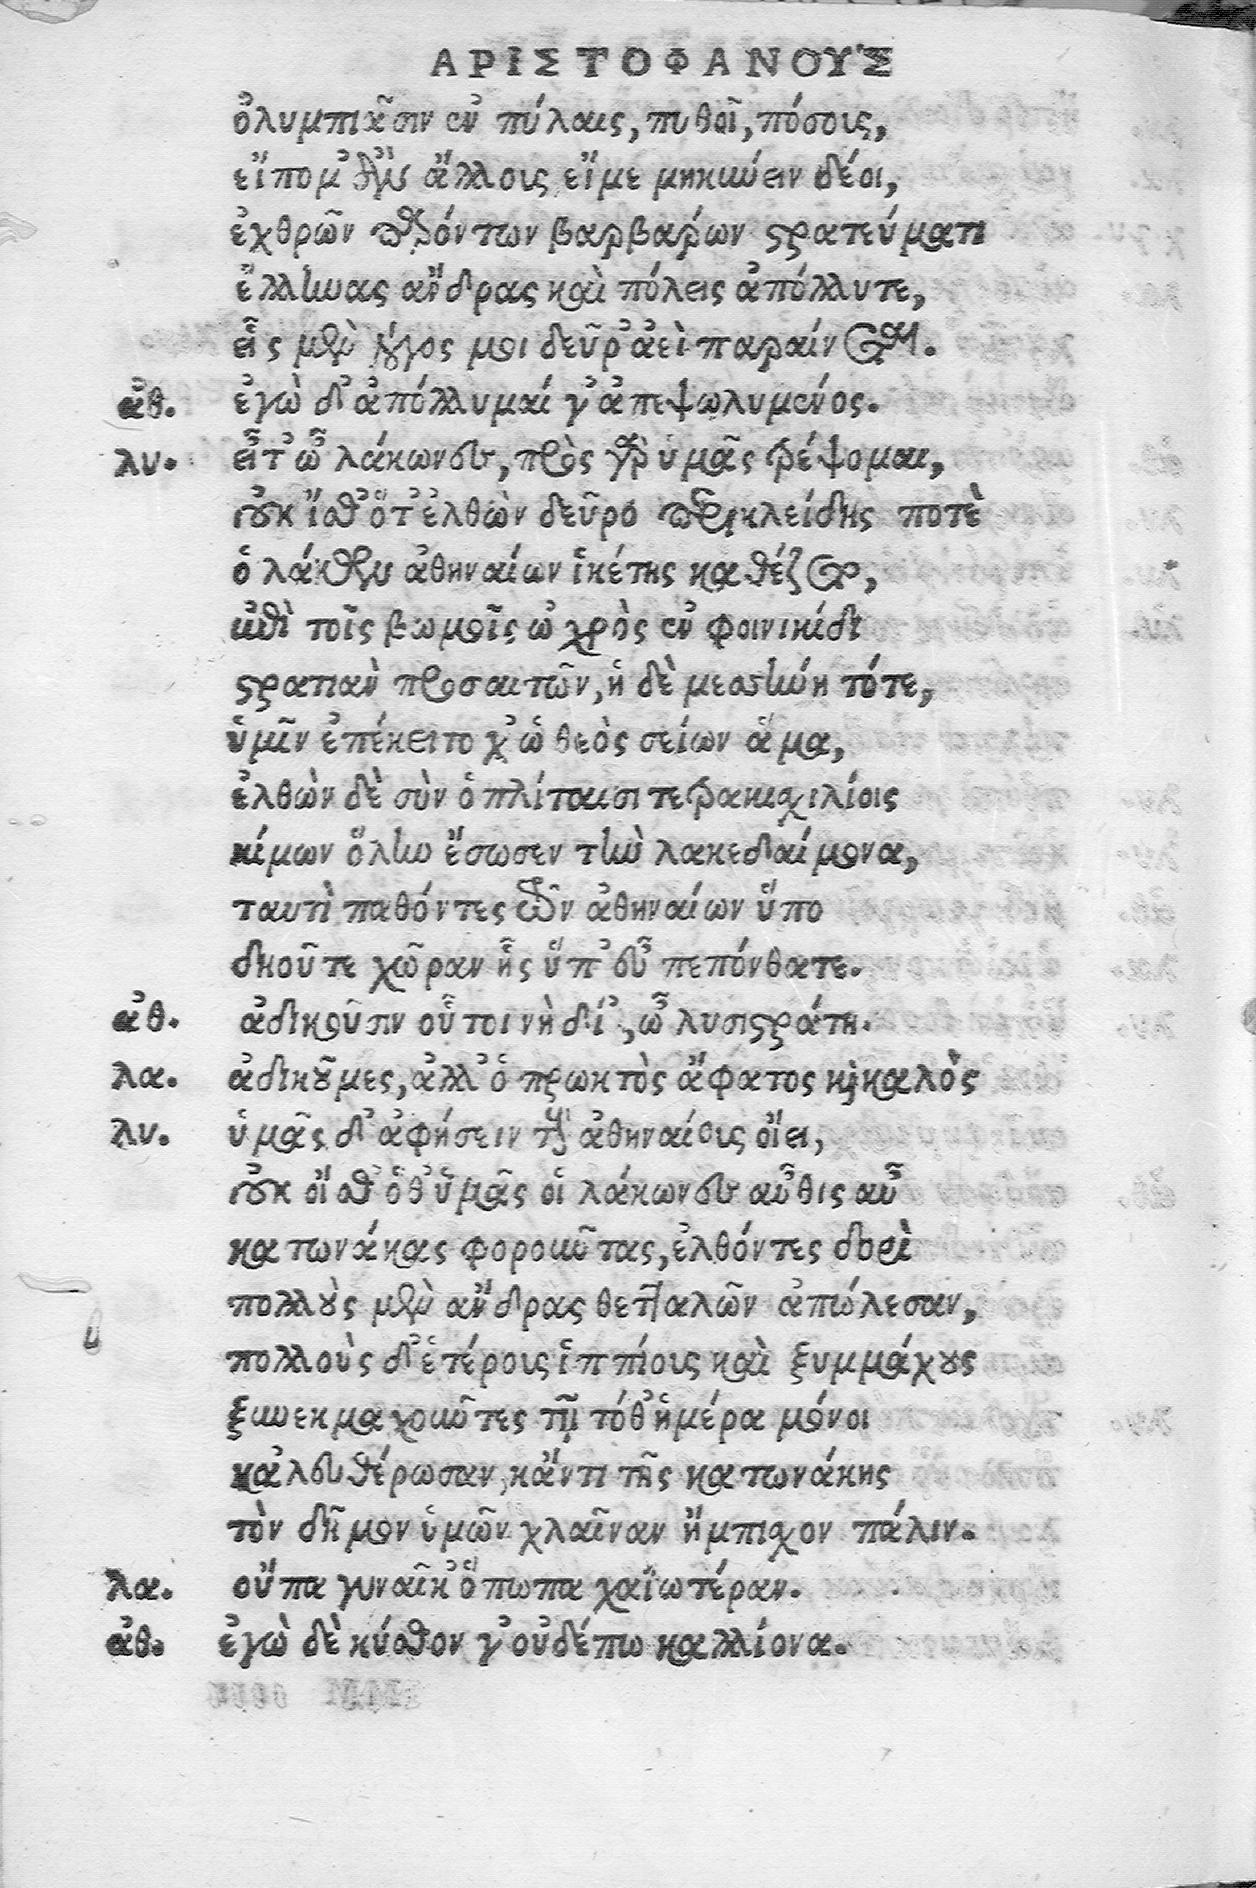 ΑΡΙΣΤΟΦΑΝΟΥΣ
ὀλυμπιᾶσιν ἐν πύλαις, πυθοῖ, πόσοις,
εἴποιμ' ἂν ἄλλοις εἴ με μηκύνειν δέοι,
ἐχθρῶν παρόντων βαρβάρων στρατεύματι
ἕλληνας ἄνδρας καὶ πόλεις ἀπόλλυτε,
εἷς μὲν λόγος μοι δεῦρ' ἀεὶ περαίνεται.
ἀθ. ἐγὼ δ' ἀπόλλυμαί γ' ἀπεψωλυμένος.
λυ. εἶτ' ὦ λάκωνες, πρὸς γὰρ ὑμᾶς τρέψομαι,
οὐκ ἴσθ' ὅτ' ἐλθὼν δεῦρο περικλείδης ποτὲ
ὁ λάκων ἀθηναίων ἱκέτης καθέζετο,
ἐπὶ τοῖς βωμοῖς ὠχρὸς ἐν φοινικίδι
στρατιὰν προσαιτῶν, ἡ δὲ μεσσήνη τότε,
ὑμῖν ἐπέκειτο χ' ὠ θεὸς σείων ἅμα,
ἐλθὼν δὲ σὺν ὁπλίταισι τετρακισχιλίοις
κίμων ὅλην ἔσωσεν τὴν λακεδαίμονα,
ταυτὶ παθόντες τῶν ἀθηναίων ὕπο
δῃοῦτε χώραν ἧς ὕπ' εὖ πεπόνθατε.
ἀθ. ἀδικοῦσιν οὗτοι νὴ δί', ὦ λυσιστράτη.
λα. ἀδικοῦμες, ἀλλ' ὁ πρωκτὸς ἄφατος καὶ καλὸς
λυ. ὑμᾶς δ' ἀφήσειν τοὺς ἀθηναίοις οἴει,
οὐκ οἴσθ' ὅθ' ὑμᾶς οἱ λάκωνες αὖθις αὖ
κατωνάκας φοροῦντας, ἐλθόντες δορὶ
πολλοὺς μὲν ἄνδρας θετταλῶν ἀπώλεσαν,
πολλοὺς δ' ἑτέροις ἱππίοις καὶ ξυμμάχους
ξυνεκμαχοῦντες τῇ τόθ' ἡμέρα μόνοι
κἀλευθέρωσαν, κἄντι τῆς κατωνάκης
τὸν δῆμον ὑμῶν χλαῖναν ἤμπισχον πάλιν.
λα. οὔπα γυναῖκ' ὄπωπα χαϊωτέραν.
ἀθ. ἐγὼ δὲ κύσθον γ' οὐδέπω καλλίονα.